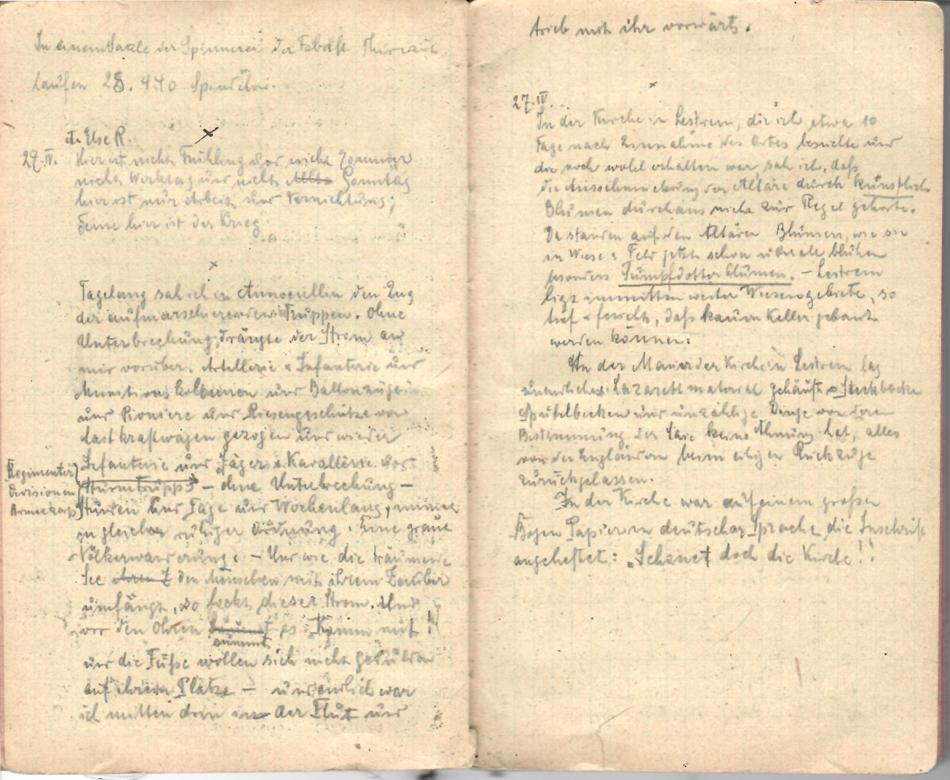 In einem Saale der Spinnerei der Fabrik
laufen 28.440 Spindeln.
d. Else R.
29.IV. Hier ist nicht Frühling und nicht Sommer
nicht Werktag und nicht Sonntag
hier ist nur Arbeit und Vernichtung;
denn hier ist der Krieg.
Tagelang sah ich in den Zug
der aufmarschierenden Truppen. Ohne
Unterbrechung drängte der Strom an
mir vorüber. Artillerie u Infanterie und
Munitions Kolonnen und Ballonzüge
und Pioniere und Riesengeschütze von
Lastkraftwagen gezogen und wieder
Infanterie und Jäger u Kavallerie und
Regimenter
Divisionen
Armeekorps
Sturmtrupps – ohne Unterbrechung –
Stunden und Tage und Wochenlang, immer
in gleicher ruhiger Ordnung. Eine graue
Völkerwanderung. – Und wie die träumende
See den Menschen mit ihrem Zauber
umfängt, so lockt dieser Strom. Und
vor den Ohren es: Komm mit!
summt
und die Füße wollen sich nicht
auf ihrem Platze – und endlich war
ich mitten drin in der Flut und
trieb mit ihr vorwärts.
27.IV.
In der Kirche in Lestrem, die ich etwa 10
Tage nach Einnahme des Ortes besuchte und
die noch wohl erhalten war sah ich, daß
die Ausschmückung der Altäre durch künstliche
Blumen durchaus nicht zur Regel gehörte.
Da standen auf den Altären Blumen, wie sie
in Wiese u Feld jetzt schon überall blühen
besonders Sumpfdotterblumen. – Lestrem
liegt inmitten weiter Wiesengebiete, so
tief u feucht, daß kaum Keller gebaut
werden können.
An der Mauer der Kirche in Lestrem lag
unendliches Lazarettmaterial gehäuft Steckbecken
Spülbecken und unzählige Dinge von deren
Bestimmung der Laie keine Ahnung hat, alles
von den Engländern beim eiligen Rückzuge
zurückgelassen.
In der Kirche war auf einem großen
Bogen Papier in deutscher Sprache die Inschrift
angeheftet: „Schonet doch die Kirche!!